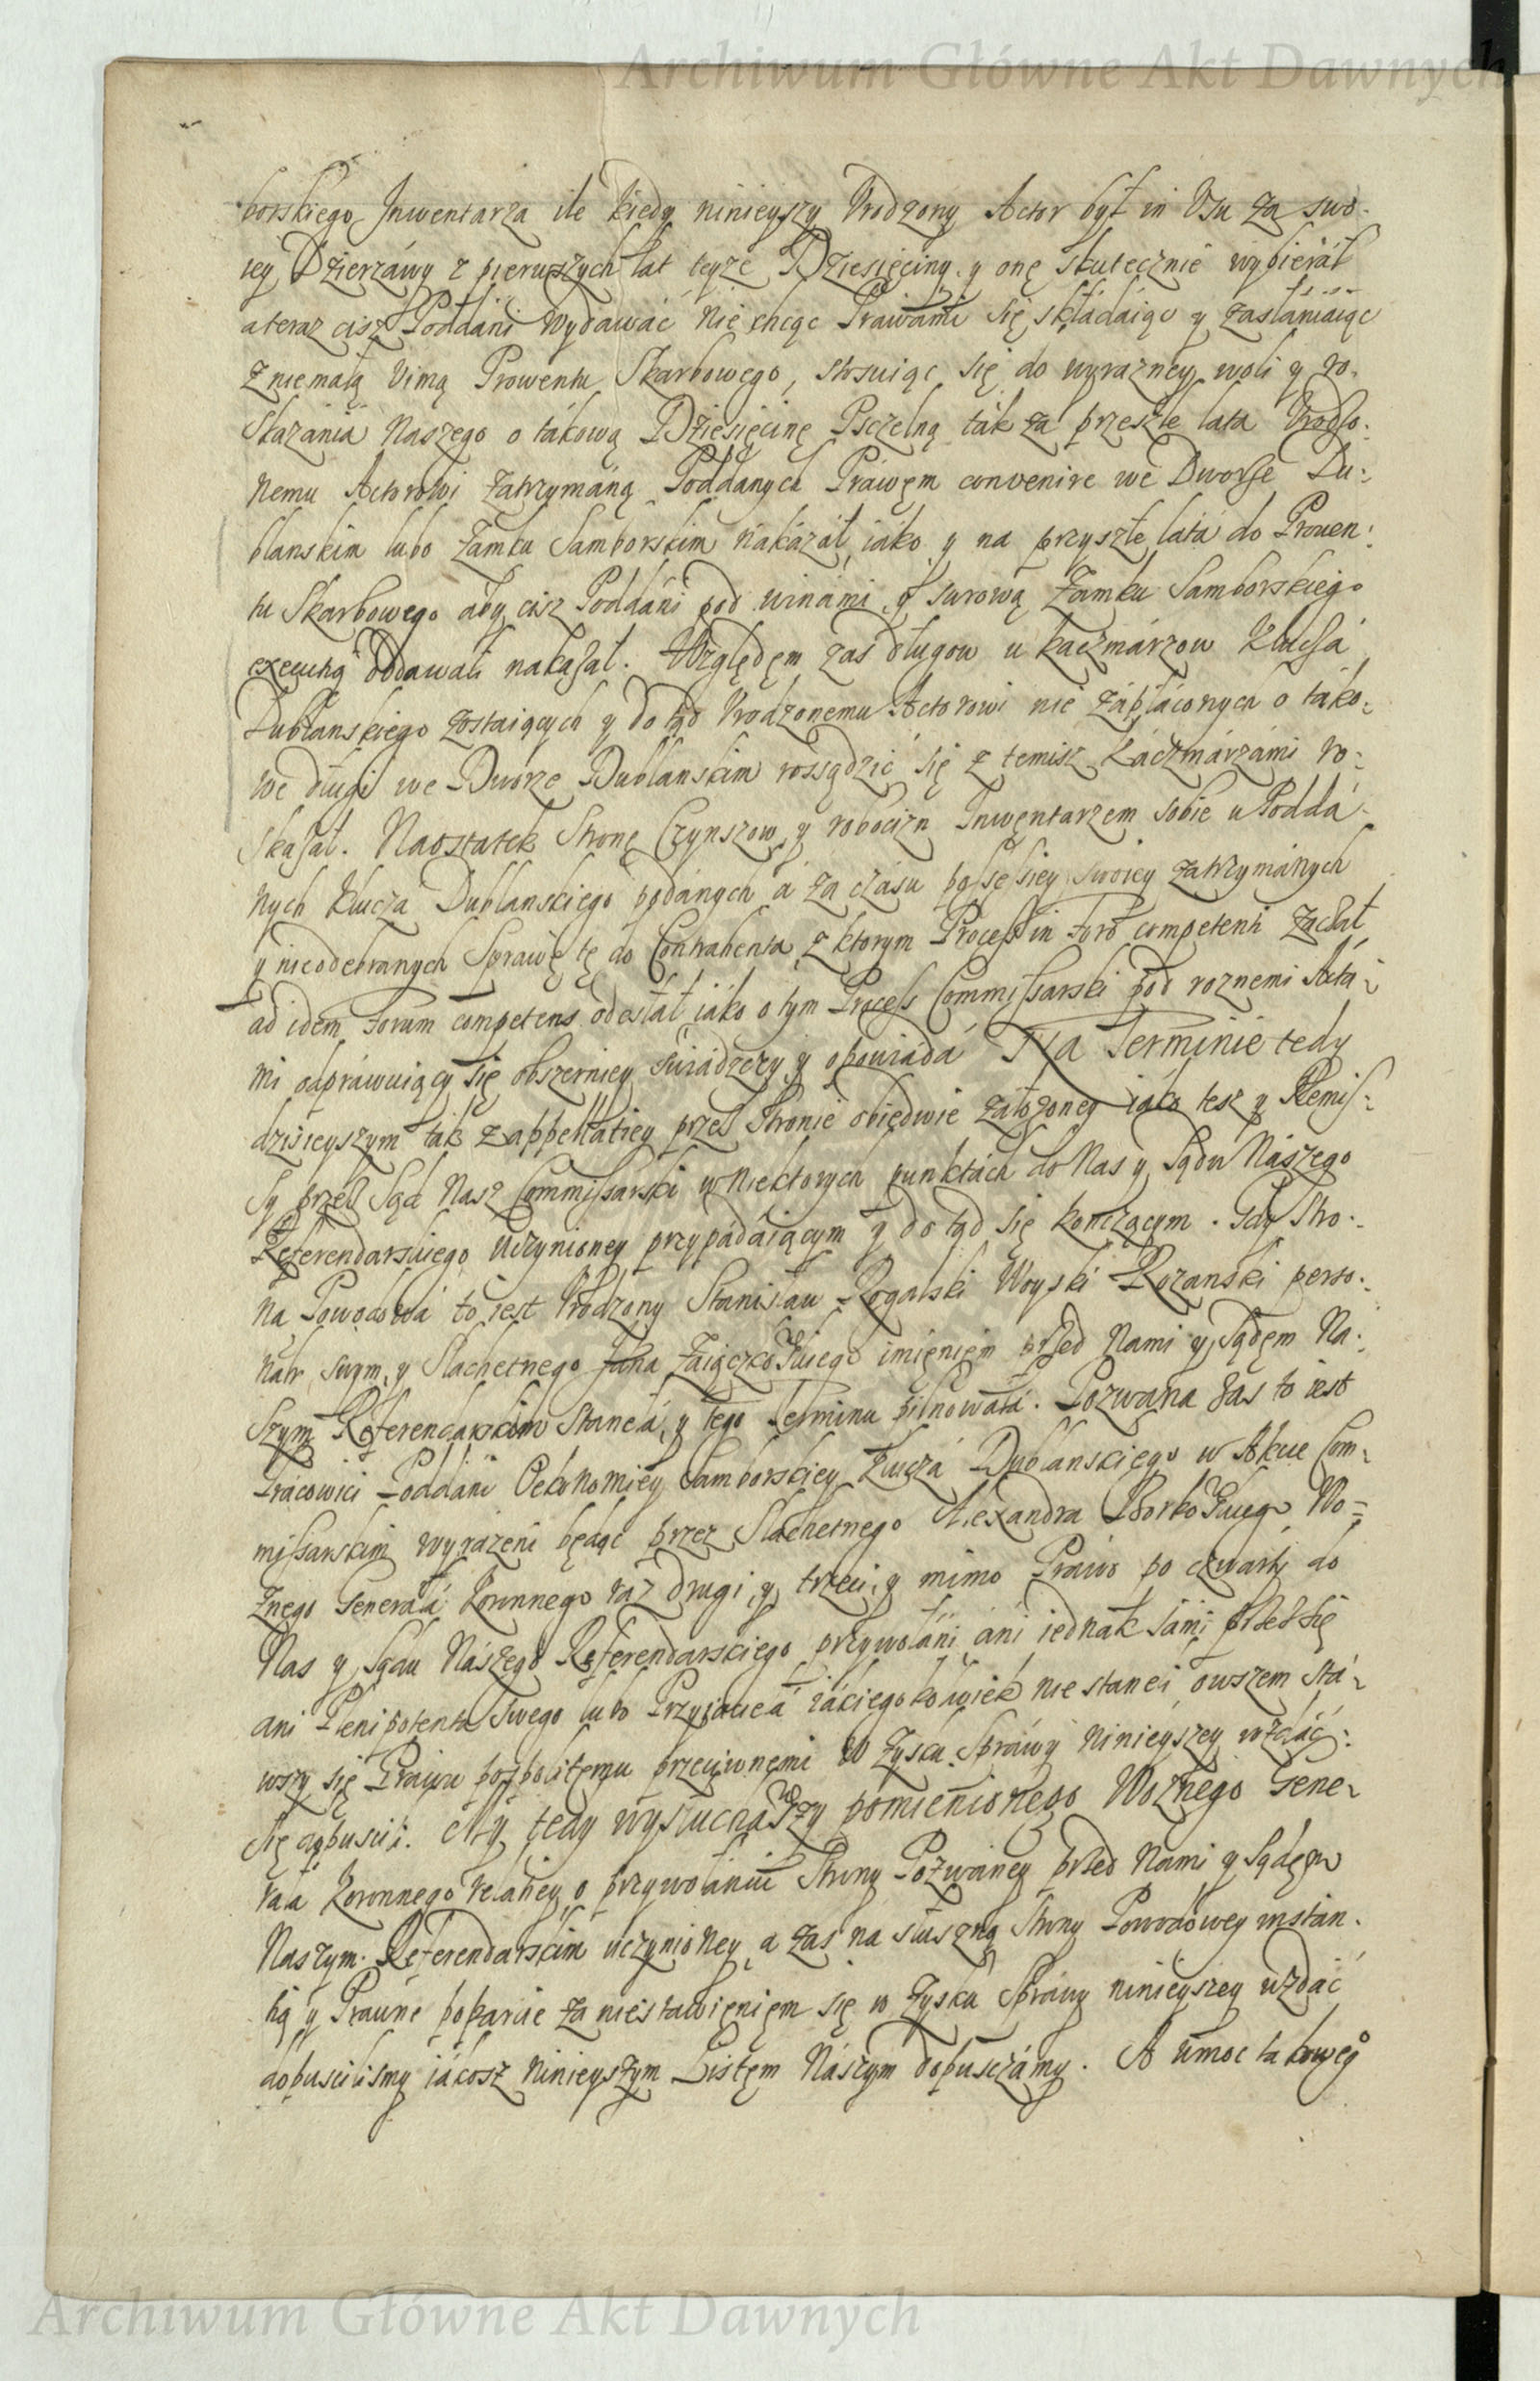 Archiwum Główne Akt Dawnych
borskiego Inwentarza ile kiedy ninieyszy Vrodzony Actor był in Vsu za swo:
iey Dzierzáwy z pierwszych lat teyże Dziesięciny y onę skutecznie wybierał
a teraz cisz Poddáni wydawáć nie chcąc Prawámi się składáiąc y zasłániáiąc
z niemałą Vimą Prowentu Skarbowego, stosuiąc się do wyrazney woli y ro:
skazánia Naszego o tákową Dziesięcinę Pszczelną ták zá przeszłe lata Vrodzo:
nemu Actorowi zatrzymáną Poddanych Práwęm convenire we Dworze Du:
blanskim lubo Zamku Samborskim nákazáł, iáko y na przyszłe látá do Prowen:
tu Skarbowego aby cisz Poddáni pod winámi y surową Zamku Samborskiego
executią oddawáli nakazał. Względęm zas długow u kaczmárzow Klucza
Dublanskiego zostaiących y dotąd Vrodzonemu Actorowi nie zápłáconych o táko:
we długi we Dworze Dublanskim rossądzić się z temisz káczmárzámi ro:
skazał. Naostatek Stronę Czynszow y robocizn Inwentarzem sobie u Poddá:
nych Klucza Dublanskiego podánych á zá czásu possessiey swoiey zatrzymánych
y nieodebranych Spráwę tę do Contrahenta z ktorym Process in foro competenti záczął
ad idem forum competens odesłał, iáko o tym Process Commissarski pod roznemi Actá:
mi odpráwuiący się obszerniey swiádczy y opowiádá Na Terminie tedy
dzisieyszym ták z appellátiey przez Stronie obiedwie záłożoney iáko tesz y Remis:
sy przez Sąd Nasz Commissárski w niektorych punktách do Nas y Sądu Nászego
Referendarskiego uczynioney przypádáiącym y dotąd się kończącym. Gdy Stro:
na Powodowá to iest Vrodzony Stanisław Rogalski Woyski Rozanski perso:
naliter swym y Slachetnego Jána Záiączkowskiego imięnięm przed Nami y Sądęm Na:
szym Referendarskim stanełá y tego Terminu pilnowáłá. Pozwana zas to iest
Prácowici Poddáni Oekonomiey Samborskiey Kluczá Dublanskiego w Akcie Com:
missarskim wyrázeni będąc przez Slachetnego Alexandra Borkowskiego Wo=
znego Generáłá Koronnego ráz drugi, y trzeci, y mimo Práwo po czwarty do
Nas y Sądu Nászego Referendarskiego przywołáni, áni iednak sámi przez się
ani Plenipotentá swego lubo Przyjacielá iákiegokolwiek nie staneli, owszem stá:
wszy się Práwu pospolitemu przeciwnęmi w zysku Spráwy ninieyszey wzdáć:
się dopuscili. My tedy wysłuchawszy pomienionego Woznego Gene:
rała Koronnego relátiey o przywołániu Strony Pozwáney przed Nami y Sądęm
Naszym Referendarskim uczynioney, a zas na słuszną Strony Powodowey instan:
tią y Prawne poparcie za niestawięnięm się w zysku Spráwy ninieyszey wzdáć
dopuscilismy iákosz ninieyszym Listęm Nászym dopuszczámy. A ŭmoc takowego
Archiwum Główne Akt Dawnych